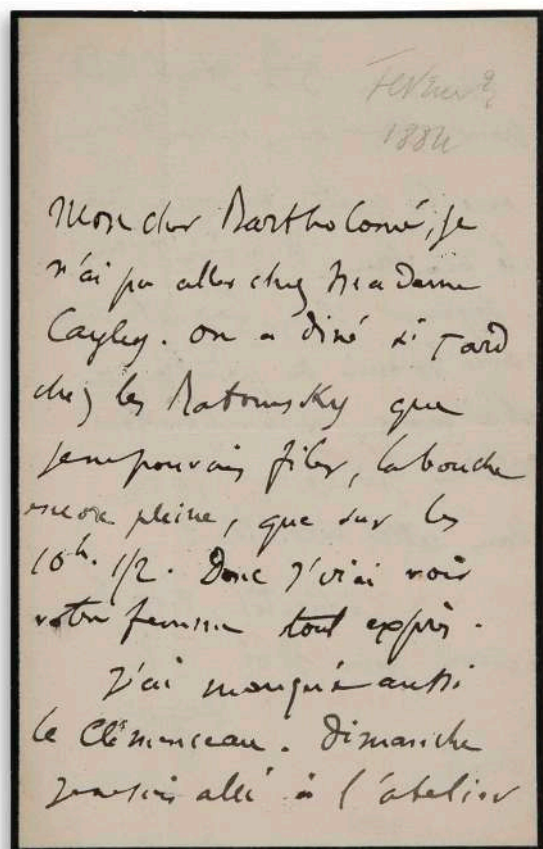 Février
1884
Mon cher Bartholomé, je
n'ai pu aller chez Madame
Cayley. on a dîné si tard
chez les que
je ne pouvais filer, la bouche
encore pleine, que sur les
10h. 1/2. Donc j'irai voir
votre femme tout exprès.
J'ai manqué aussi
le Clémenceau. Dimanche
je ne suis allé à l'atelier